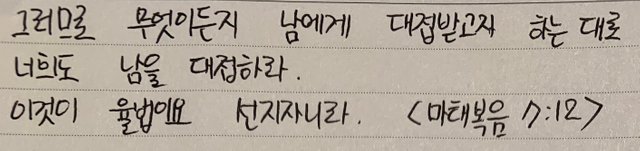 그러므로 무엇이든지 남에게 대접받고자 하는 대로
너희도 남을 대접하라.
이것이 율법이요 선지자니라. <마태복음 7:12>